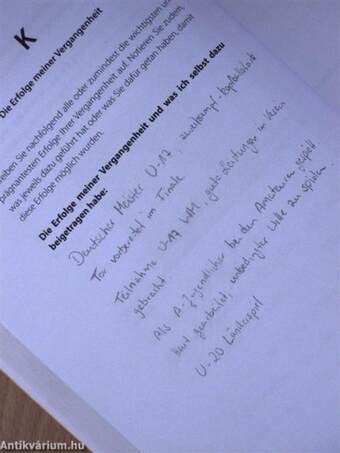 K
Die Erfolge meiner Vergangenheit
eiben Sie nachfolgend alle oder zumindest die wichtigsten und
prägnantesten Erfolge Ihrer Vergangenheit auf. Notieren Sie zudem,
was jeweils dazu geführt hat oder was Sie dafür getan haben, damit
diese Erfolge möglich wurden.
Die Erfolge meiner Vergangenheit und was ich selbst dazu
beigetragen habe:
Deutscher Meister U-17,
Tor vorbereitet im Finale
Teilnahme U-17 WM, gute Leistungen im Verein
gebracht
Als A-Jugendlicher bei den Amateuren gespielt
hart gearbeitet, unbedingter Wille zu spielen
U-20 Länderspiel
Antikvárium.hu